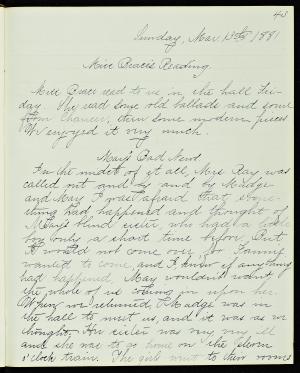 43
Sunday, Mar. 13th, 1881
Miss Brace's Reading.
Miss Brace read to us in the hall Fri-
day. She read some old ballads and some
from Chaucer, then some modern pieces
We enjoyed it very much.
May's Bad News.
In the midst of it all, Mrs. Ray was
called out and by and by Madge
and May. I was afraid that some-
thing had happened and thought of
May's blind sister, who had a
boy only a short time before. But
I would not come over, for Fannie
wanted to come, and I knew if anything
had happened, May wouldn't want
the whole of us coming in upon her.
When we returned, Madge was in
the hall to meet us, and it was as we
thought. Her sister was very, very ill
and she was to go home on the eleven
o'clock train. The girls went to their rooms